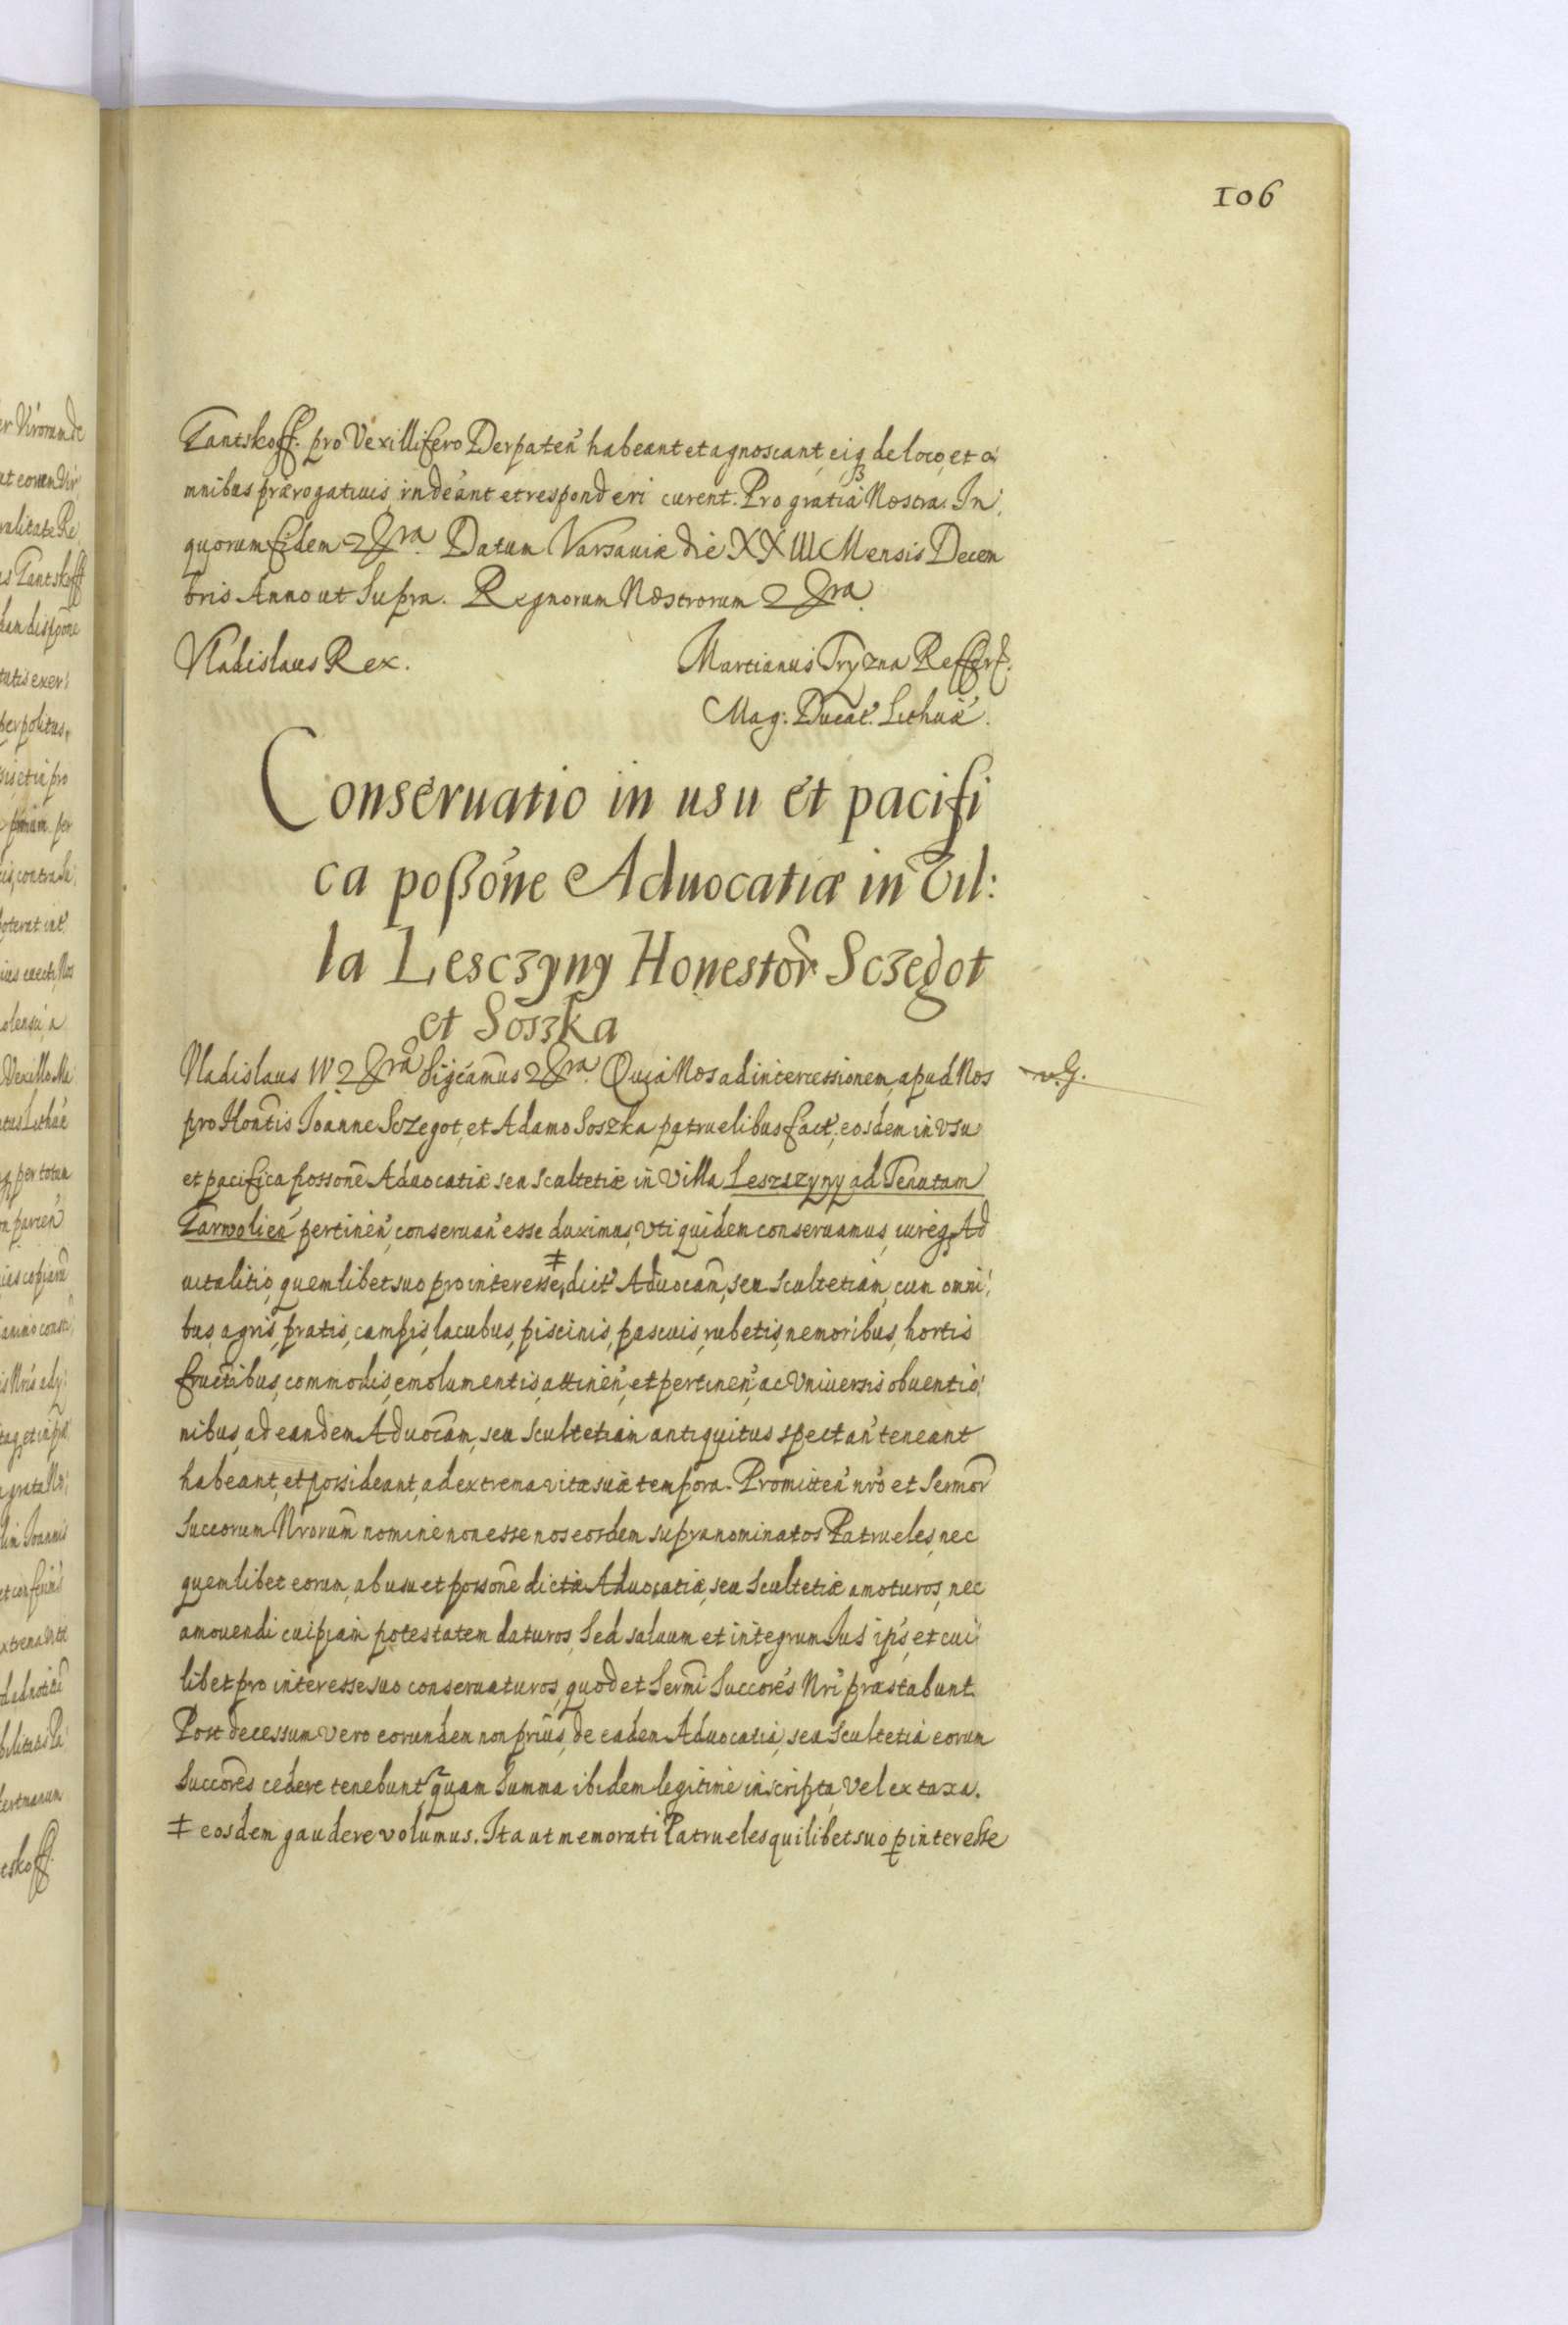 106
Tantskoff. pro Vexillifero Derpateñ habeant et agnoscant, eiq3 de loco, et o:
mnibus prærogativis, indeant et responderi curent. Pro gratia Nostra. In,
quorum fidem &ra. Datum Varsaviæ die XXIII Mensis Decem
bris Anno ut Supra. Regnorum Nostrorum &ra.
Vladislaus Rex. Martianus Tryzna Refferf.
Mag: Ducat. Lithuæ.
Conservatio in usu et pacifi
ca poßone Aduocatiæ in Vil:
la Lesczyny Honestor Sczegot
et Soszka
Vladislaus IV &ra Sigcamus &ra. Quia Nos ad intercessionem, apud Nos
v. G.
pro Hontis Joanne Sczegot, et Adamo Soszka patruelibus fact, eosdem in Vsu
et pacifica possone Aduocatiæ seu Scultetiæ in Villa Leszszyny ad Tenutam
Garwolieñ pertineñ, conseruañ esse duximus, Vti quidem conseruamus, iureq3 Ad
uitalitio, quemlibet suo pro interesse, ‡ dict Aduocam, seu Scultetiam, cum omni:
bus agris, pratis, campis, lacubus, piscinis, pascuis, rubetis, nemoribus, hortis
fructibus, commodis, emolumentis, attineñ, et pertineñ, ac Vniuersis obuentio:
nibus, ad eandem Aduocam, seu Scultetiam antiquitus spectañ teneant
habeant, et possideant, ad extrema vitæ suæ tempora. Promitteñ nro et Sermor
Succorum Nrorum nomine non esse nos eosdem supranominatos Patrueles, nec
quemlibet eorum, ab usu et possone dictæ Aduocatiæ, seu Scultetiæ amoturos, nec
amouendi cuipiam potestatem daturos, Sed saluum et integrum Jus ips, et cui
libet pro interesse suo conseruaturos, quod et Sermi Succores Nri præstabunt.
Post decessum vero eorundem non prius, de eadem Aduocatia, seu Scultetia eorum
Succores cedere tenebunt, quam Summa ibidem legitime inscripta, Vel ex taxa.
‡ eosdem gaudere volumus. Ita ut memorati Patrueles quilibet suo p interesse